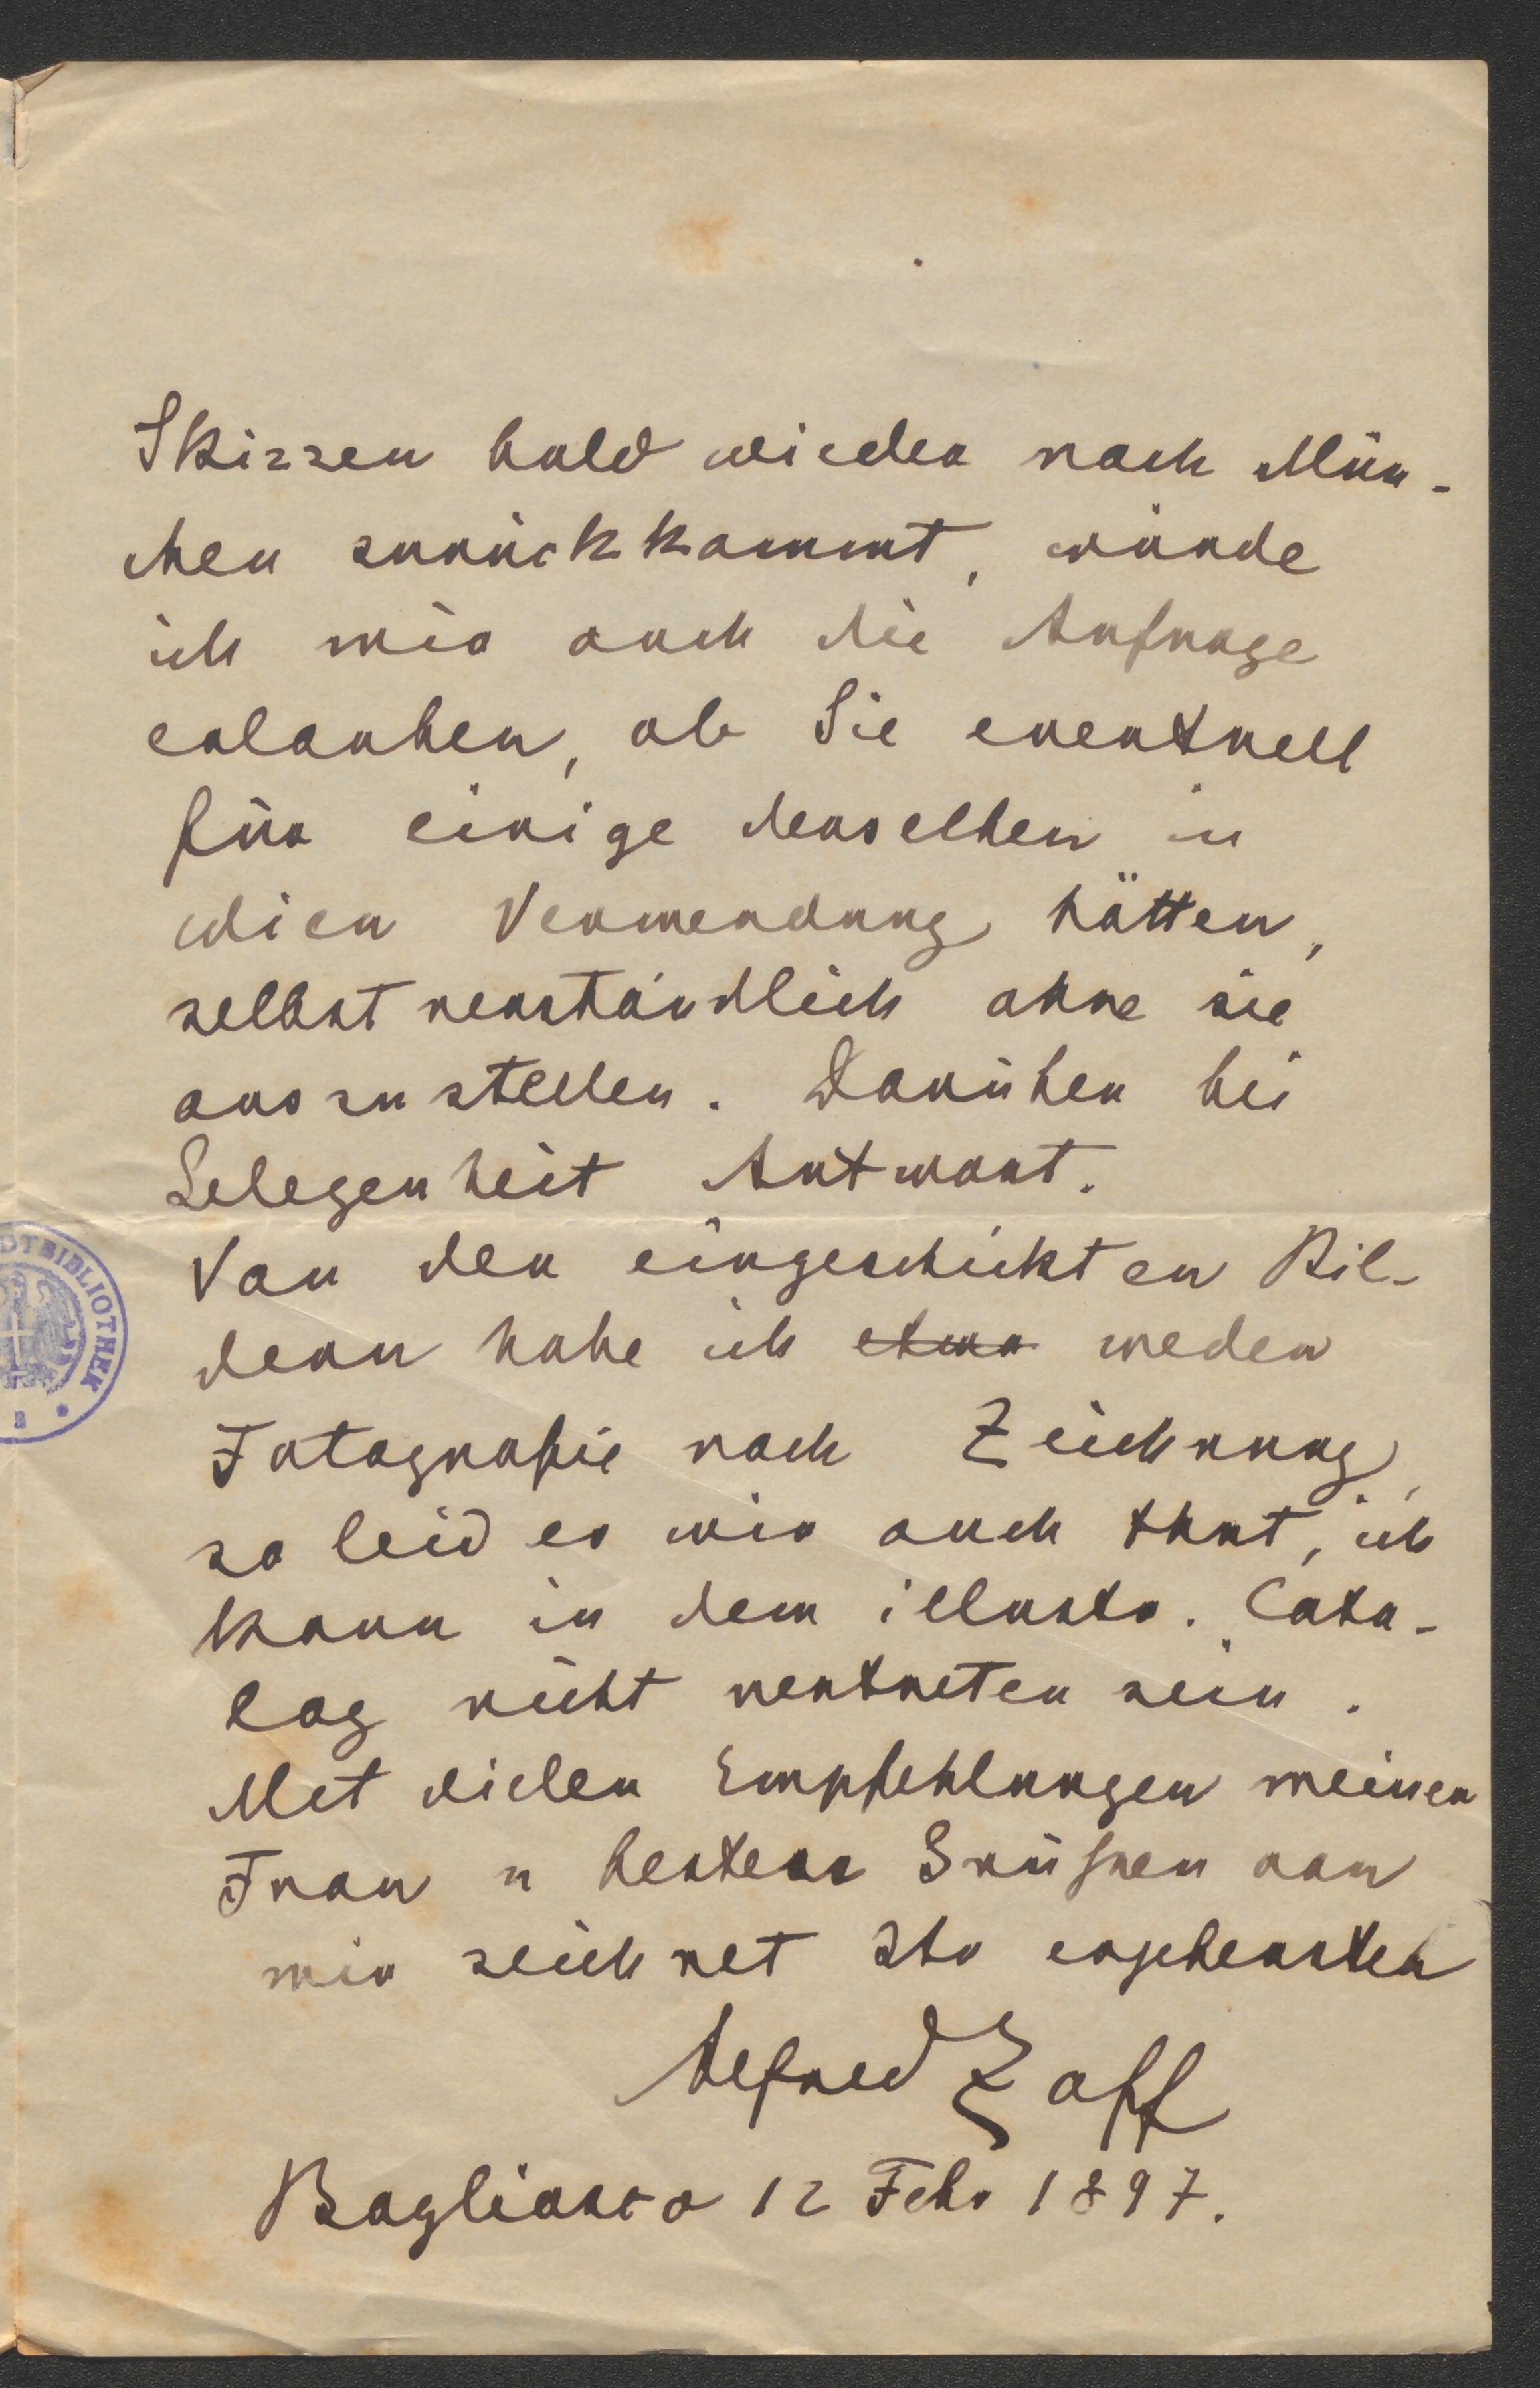 Skizzen bald wieder nach Mün-
chen zurückkommt, würde
ich mir auch die Anfrage
erlauben, ob Sie eventuell
für einige derselben in
Wien Verwendung hätten,
selbstverständlich ohne sie
auszustellen. Darüber bei
Gelegenheit Antwort.
Von den eingeschickten Bil-
dern habe ich etwa weder
Fotografie noch Zeichnung,
so leid es mir auch thut, ich
kann in dem illustr. Cata-
log nicht vertreten sein.
Mit vielen Empfehlungen meiner
Frau u besten Grüßen von
mir zeichnet Ihr ergebenster
Alfred Zoff
Bogliasco 12 Febr 1897.
DTBIBLIOTHEK